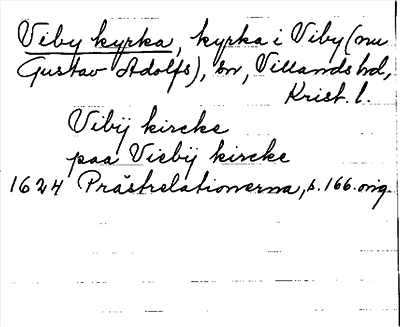 Viby kyrka, kyrka i Viby (nu
Gustav Adolfs), sn, Villands hd,
Krist. l.
Vibÿ kircke
paa Viebÿ kircke
1624 Prästrelationerna, s. 166. orig.